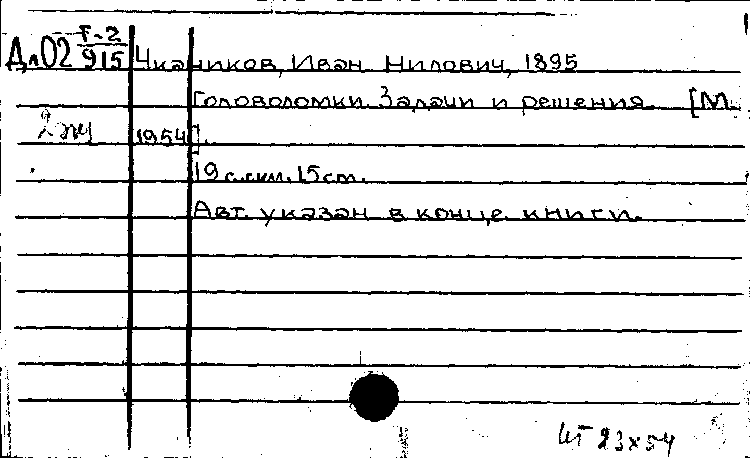 Г-2
Дл02 915 Чкаников, Иван Нилович, 1895
Головоломки. Задачи и решения. [М.
2 эк
1954].
19 с. илл. 15 см.
Авт. указан в конце книги.
23х54